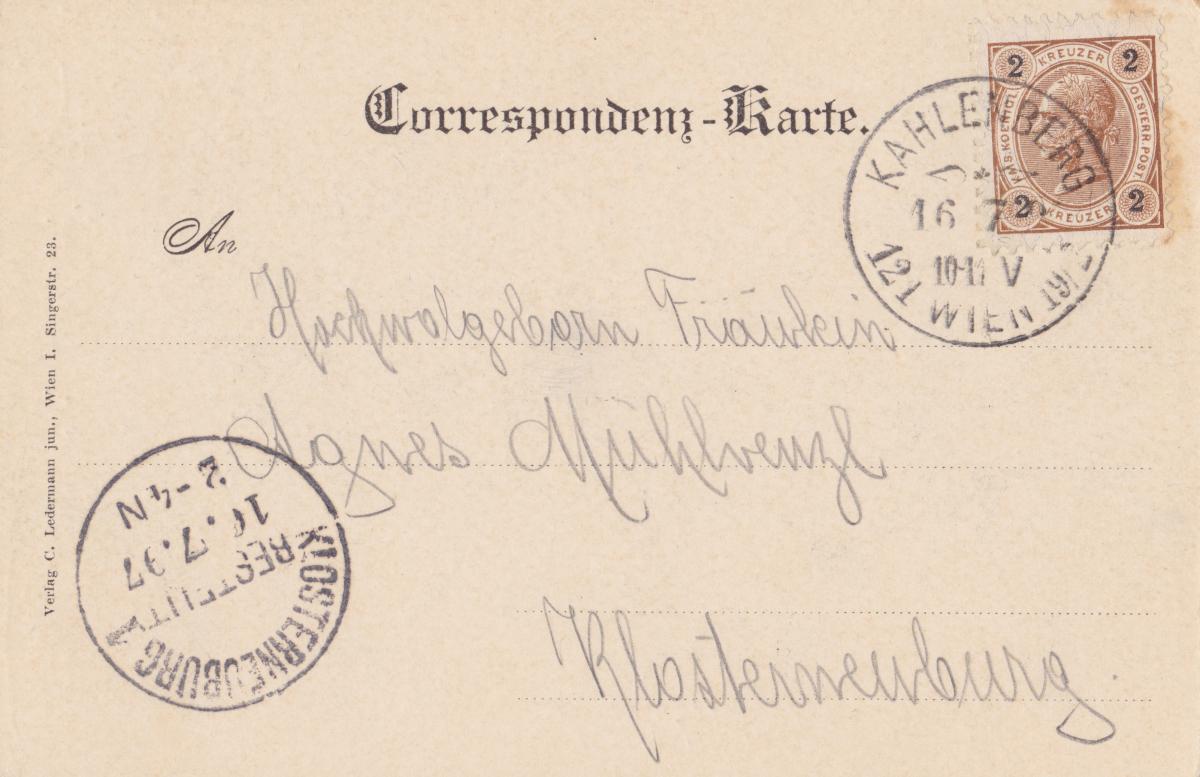 Correspondenz-Karte.
2 KREUZER 2
KAIS. KOENIGL. OESTERR. POST.
2 KREUZER 2
KAHLENBERG
16 7
10-11 V
WIEN 19/2
121
An
Hochwolgeborn Fräulein
Agnes Mühlvenzl
Klosterneuburg.
2-4N
16.7.97
BESTELLT
KLOSTERNEUBURG 1
Verlag C. Ledermann jun., Wien I. Singerstr. 23.